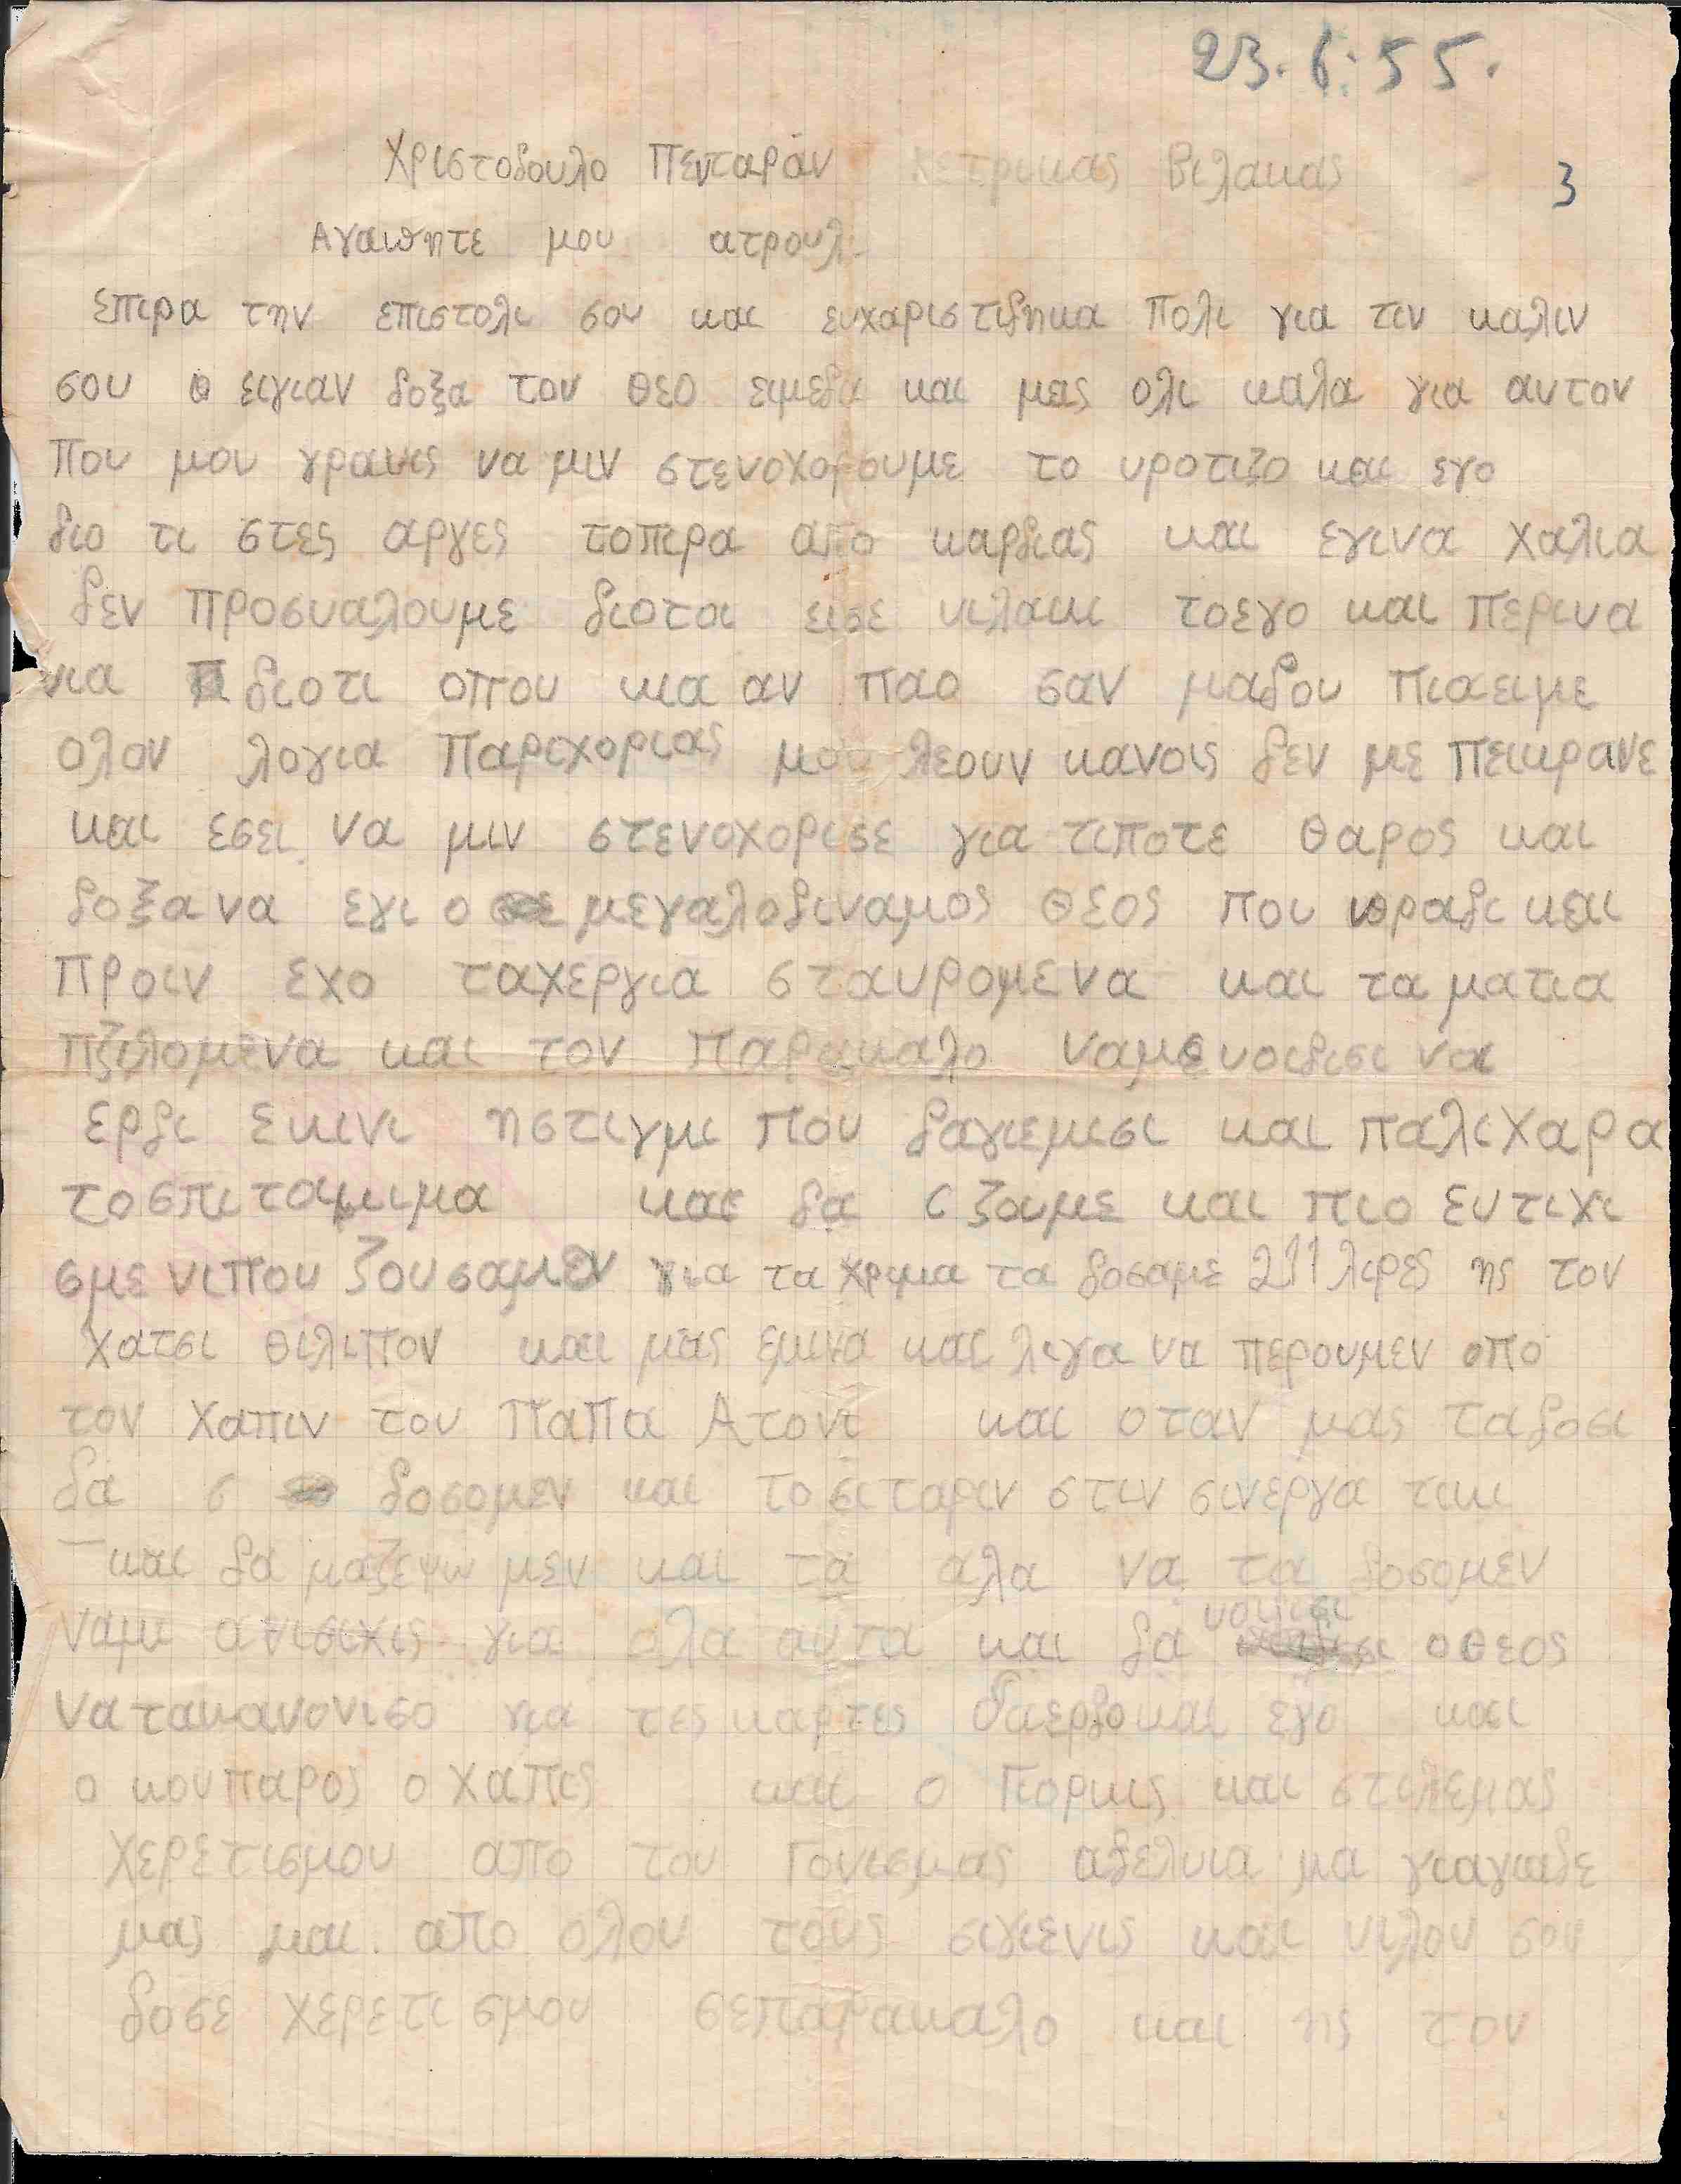 23.6.55.
Χριστοδουλο Πενταράν Κετρικας Βιλακας 3
Αγαπητε μου ατρουλι
επιρα την επιστολι σου και ευχαριστιδηκα Πολι για τιν καλιν
σου ειγιαν δοξα τον θεο ειμεδα και μας ολι καλα για αυτον
Που μου γραυις να μιν στενοχορουμε το υροτιζο και εγο
διο τι στες αργες τοπιρα απο καρδιας και εγινα χαλια
δεν προσυαλουμε διοται εισε υιλακι τοεγο και περινα
νια διοτι οπου κια αν παο σαν μαδου πιαειμε
ολον λογια Παριχοριας μου λεουν κανοις δεν με πεικρανε
και εσει να μιν στενοχορισε για τιποτε θαρος και
δοξα να εχι ο μεγαλοδιναμος θεος που υραδι και
Προιν εχο ταχεργια σταυρομενα και τα ματια
πζιλομενα και τον Παρακαλο ναμε υοιδισι να
ερδι εκινι ηστιγμι που δαγιεμισι και παλιχαρα
τοσπιταμιμα και δα ζουμε και πιο ευτιχι
σμε νιπου ζουσαμεν για τα χριμα τα δοσαμε 211 λιρες ης τον
χατσι θιλιπον και μας εμινα και λιγα να περουμεν απο
τον χαπιν του Παπα Ατονι και οταν μας ταδοσι
δα δοσομεν και το σιταριν στιν σινεργα τικι
και δα μαζεψω μεν και τα αλα να τα δοσομεν
ναμι ανισιχις για ολα αυτα και δα υοιισι οθεος
να τακανονισο για τες καρτες δαερδοκαι εγο και
ο κουπαρος ο χαπις και ο Γιορκις και στιλεμας
χερετισμου απο του Γονισμας αδελυια μα γιαγιαδε
μας και απο ολου τους σιγιενις και υιλου σου
δοσε χερετι σμου σεπαρακαλο και ης τον